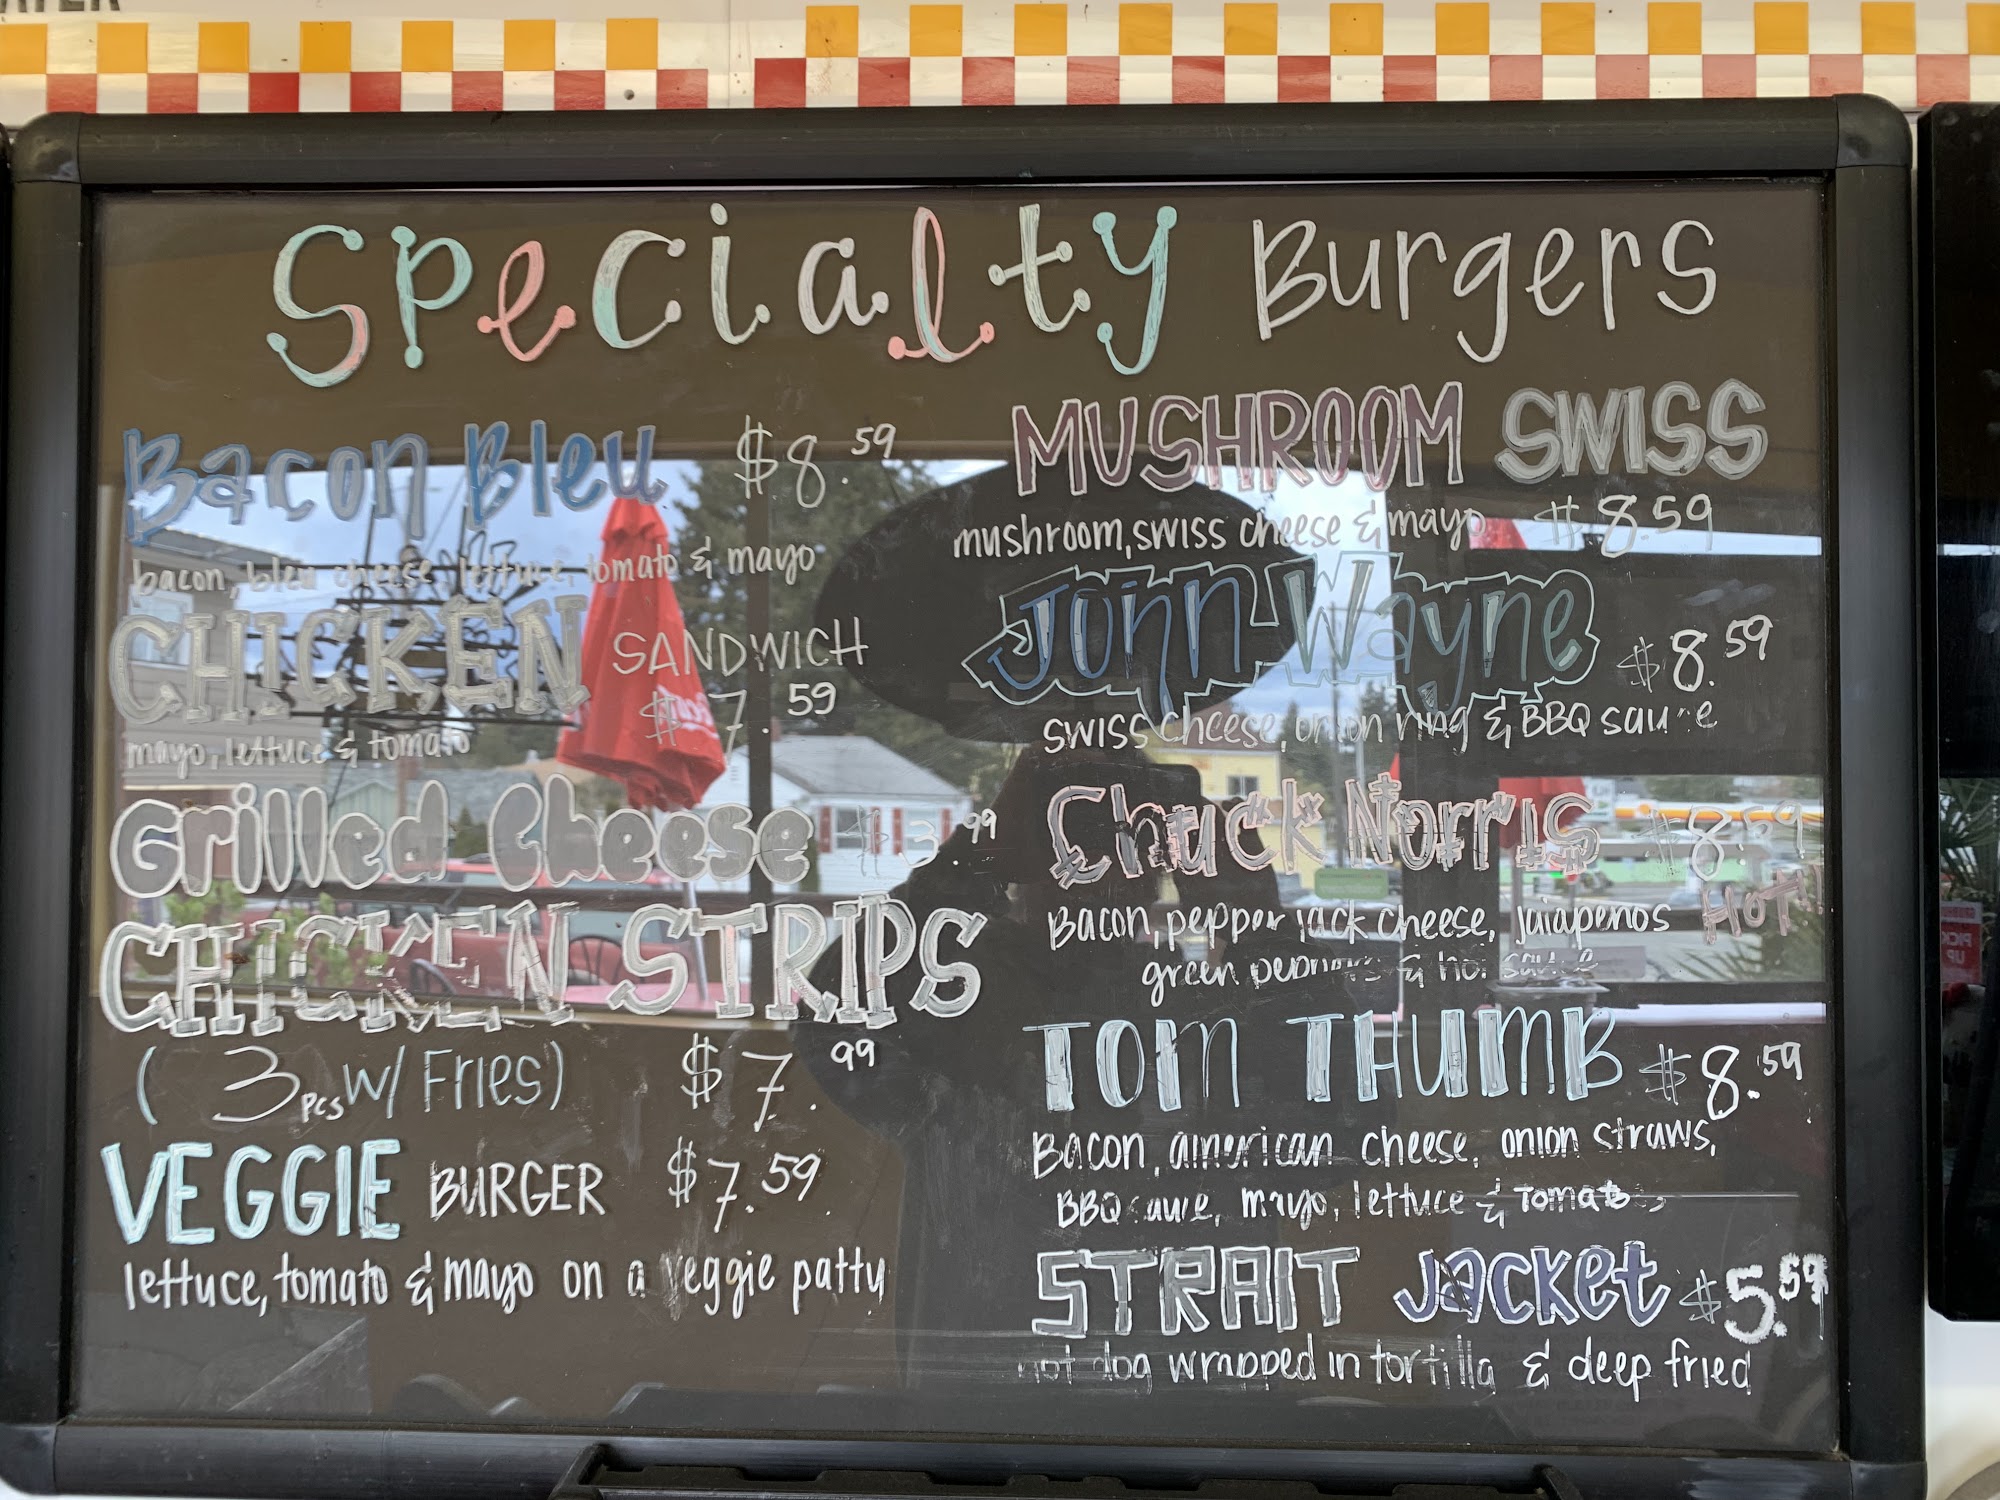 Specialty Burgers
Bacon Bleu $8.59
bacon, bleu cheese, lettuce, tomato & mayo
CHICKEN SANDWICH
$7.59
mayo, lettuce & tomato
Grilled Cheese $3.99
CHICKEN STRIPS
(3pcs w/ Fries) $7.99
VEGGIE BURGER $7.59
lettuce, tomato & mayo on a veggie patty
MUSHROOM SWISS
mushroom, swiss cheese & mayo $8.59
John Wayne $8.59
SWISS cheese, onion ring & BBQ sauce
Chuck Norris $8.59
HOT!
Bacon, pepper jack cheese, jalapenos
green peppers & hot sauce
TOM THUMB $8.59
Bacon, american cheese, onion straws,
BBQ sauce, mayo, lettuce & tomatoes
STRAIT JACKET $5.59
hot dog wrapped in tortilla & deep fried
PICK
UP